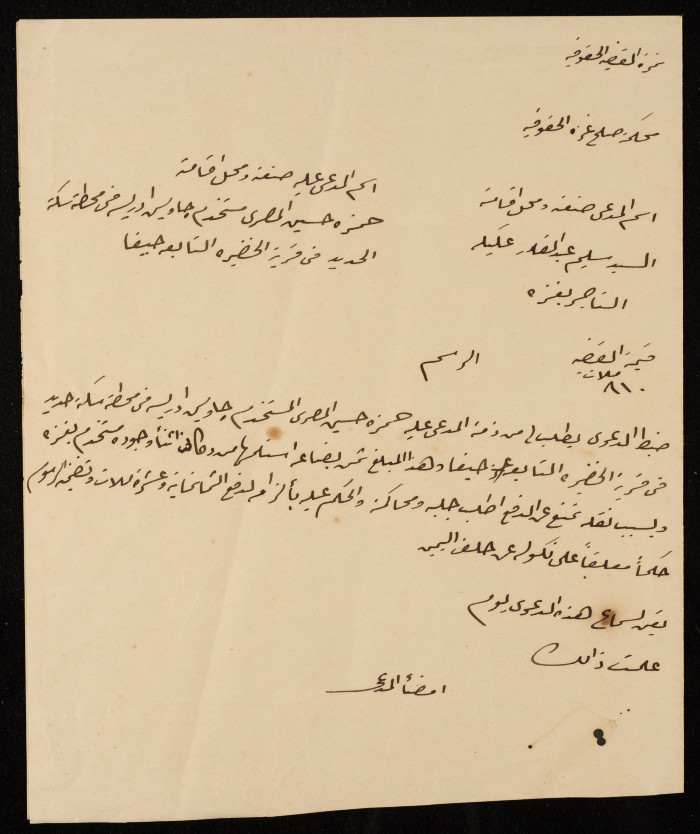 نمرة القضية الحقوقية
محكمة صلح غزة الحقوقية
اسم المدعي صنعته ومحل اقامته
السيد سليم عبد القادر عكيله
التاجر بغزه
اسم المدعى عليه صنعته ومحل اقامته
حمزه حسين المصري مستخدم جاويش ادريسه في محطة سكة
الحديد في قرية الخضيره التابعه حيفا
قيمة القضيه
ملات
٨١٠
الرسم
ضبط الدعوى يطلب لي من ذمة المدعى عليه حمزه حسين المصري المستخدم جاويش ادريسه في محطة سكة حديد
في قرية الخضيره التابعه حيفا وهذا المبلغ ثمن بضاعه استلمها من دكاني اثناء وجوده مستخدم بغزه
وبسبب نقله تمنع عن الدفع اطلب جلبه ومحاكمته والحكم عليه بألزامه لدفع الثمانماية وعشرة ملات وتضمينه الرسوم
حكماً معلقاً على نكوله عن حلف اليمين
يعين لسماع هذه الدعوى يوم
علمت ذالك
امضأ المدعي